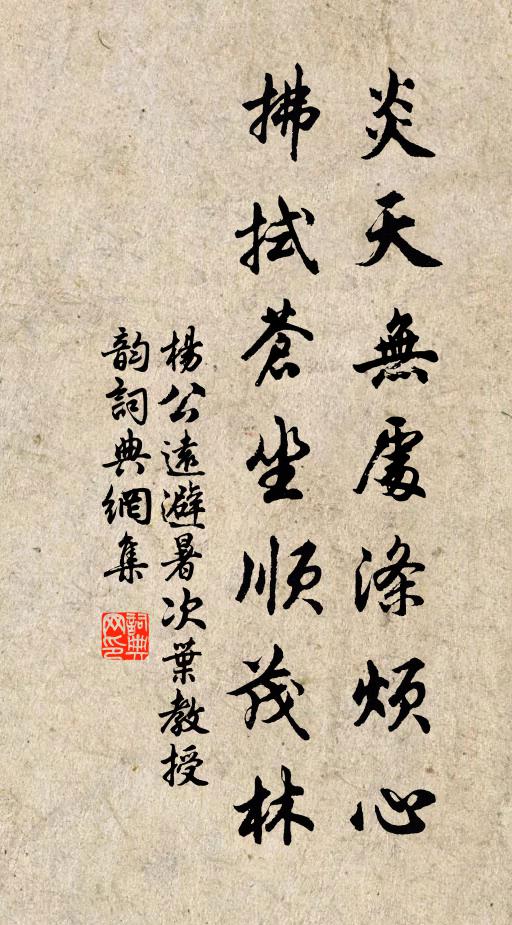 炎天無處滌煩心
拂拭蒼坐順茂林
楊公遠避暑次葉教授
韵詞典網集
詞典网印